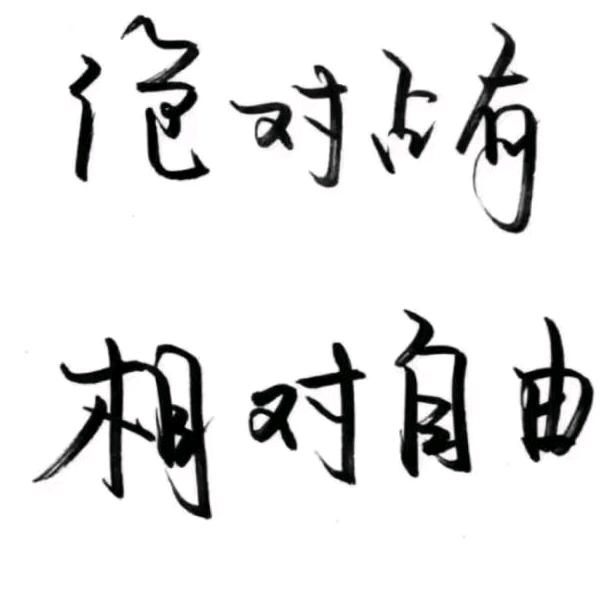 绝对占有
相对自由